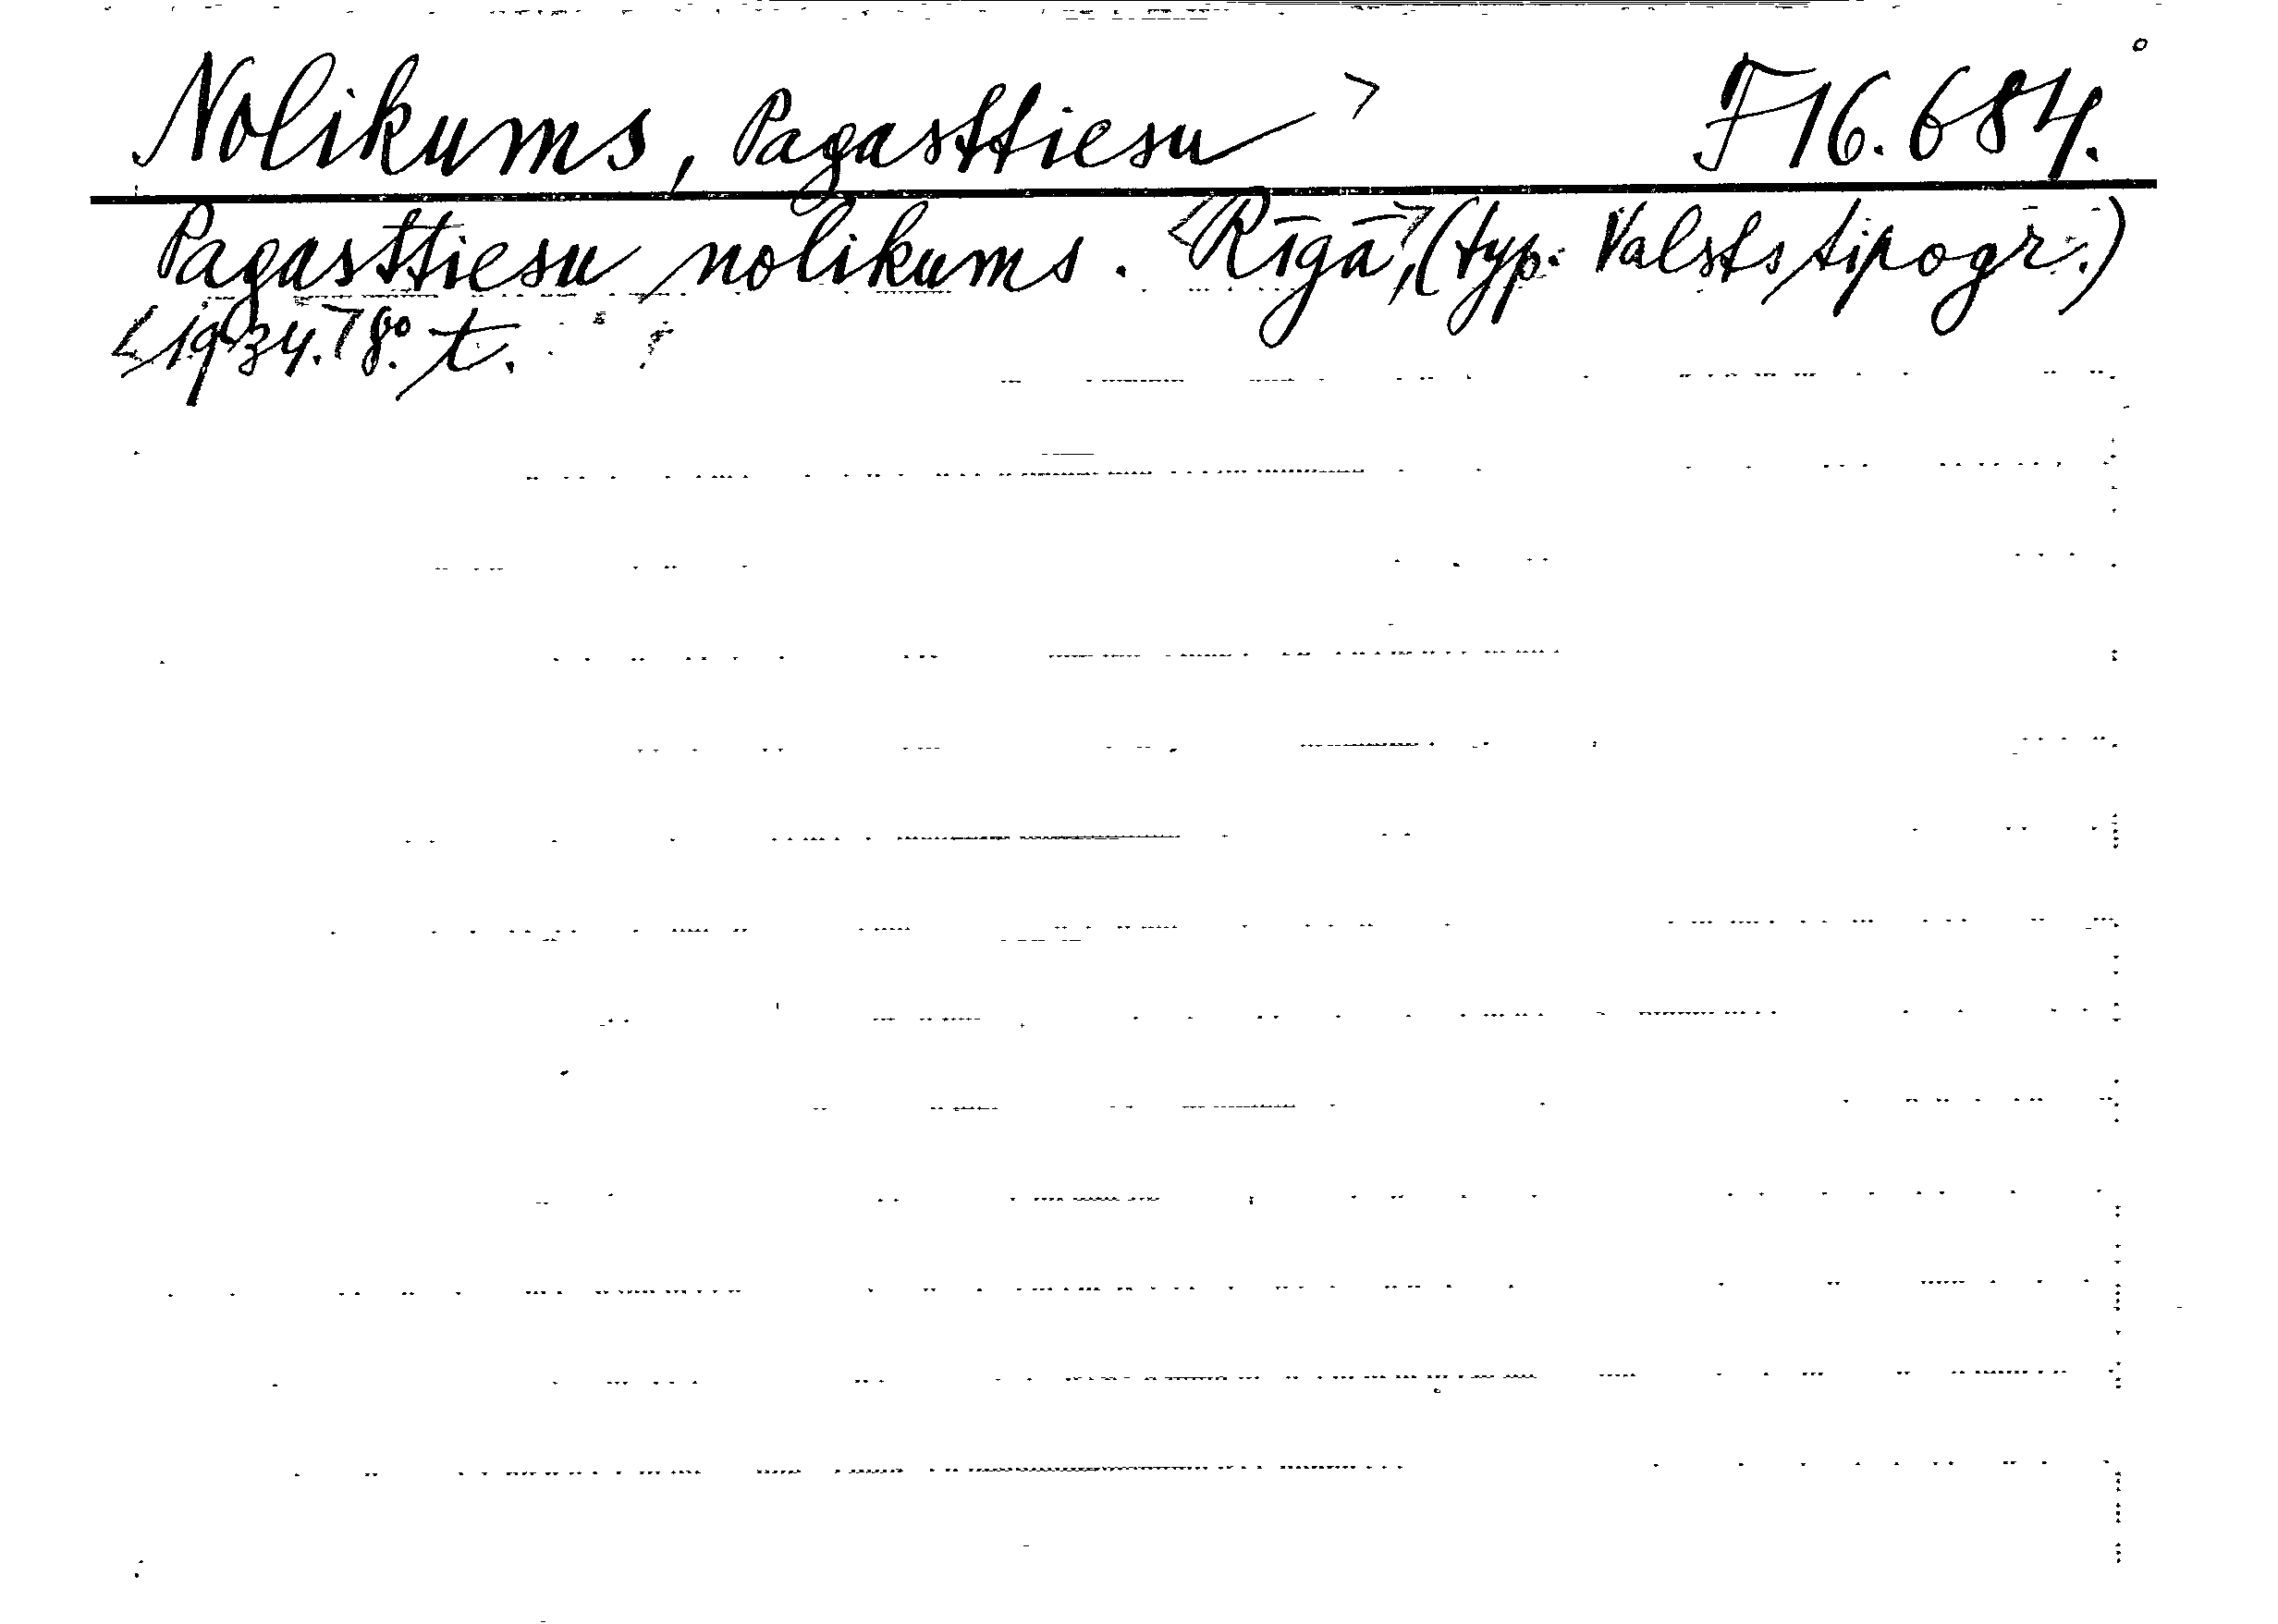 Nolikums, Pagasttiesu > F16.684.
Pagasttiesu nolikums. <Rīgā>, (typ. Valsts tipogr.)
<1934.> 8º. t.